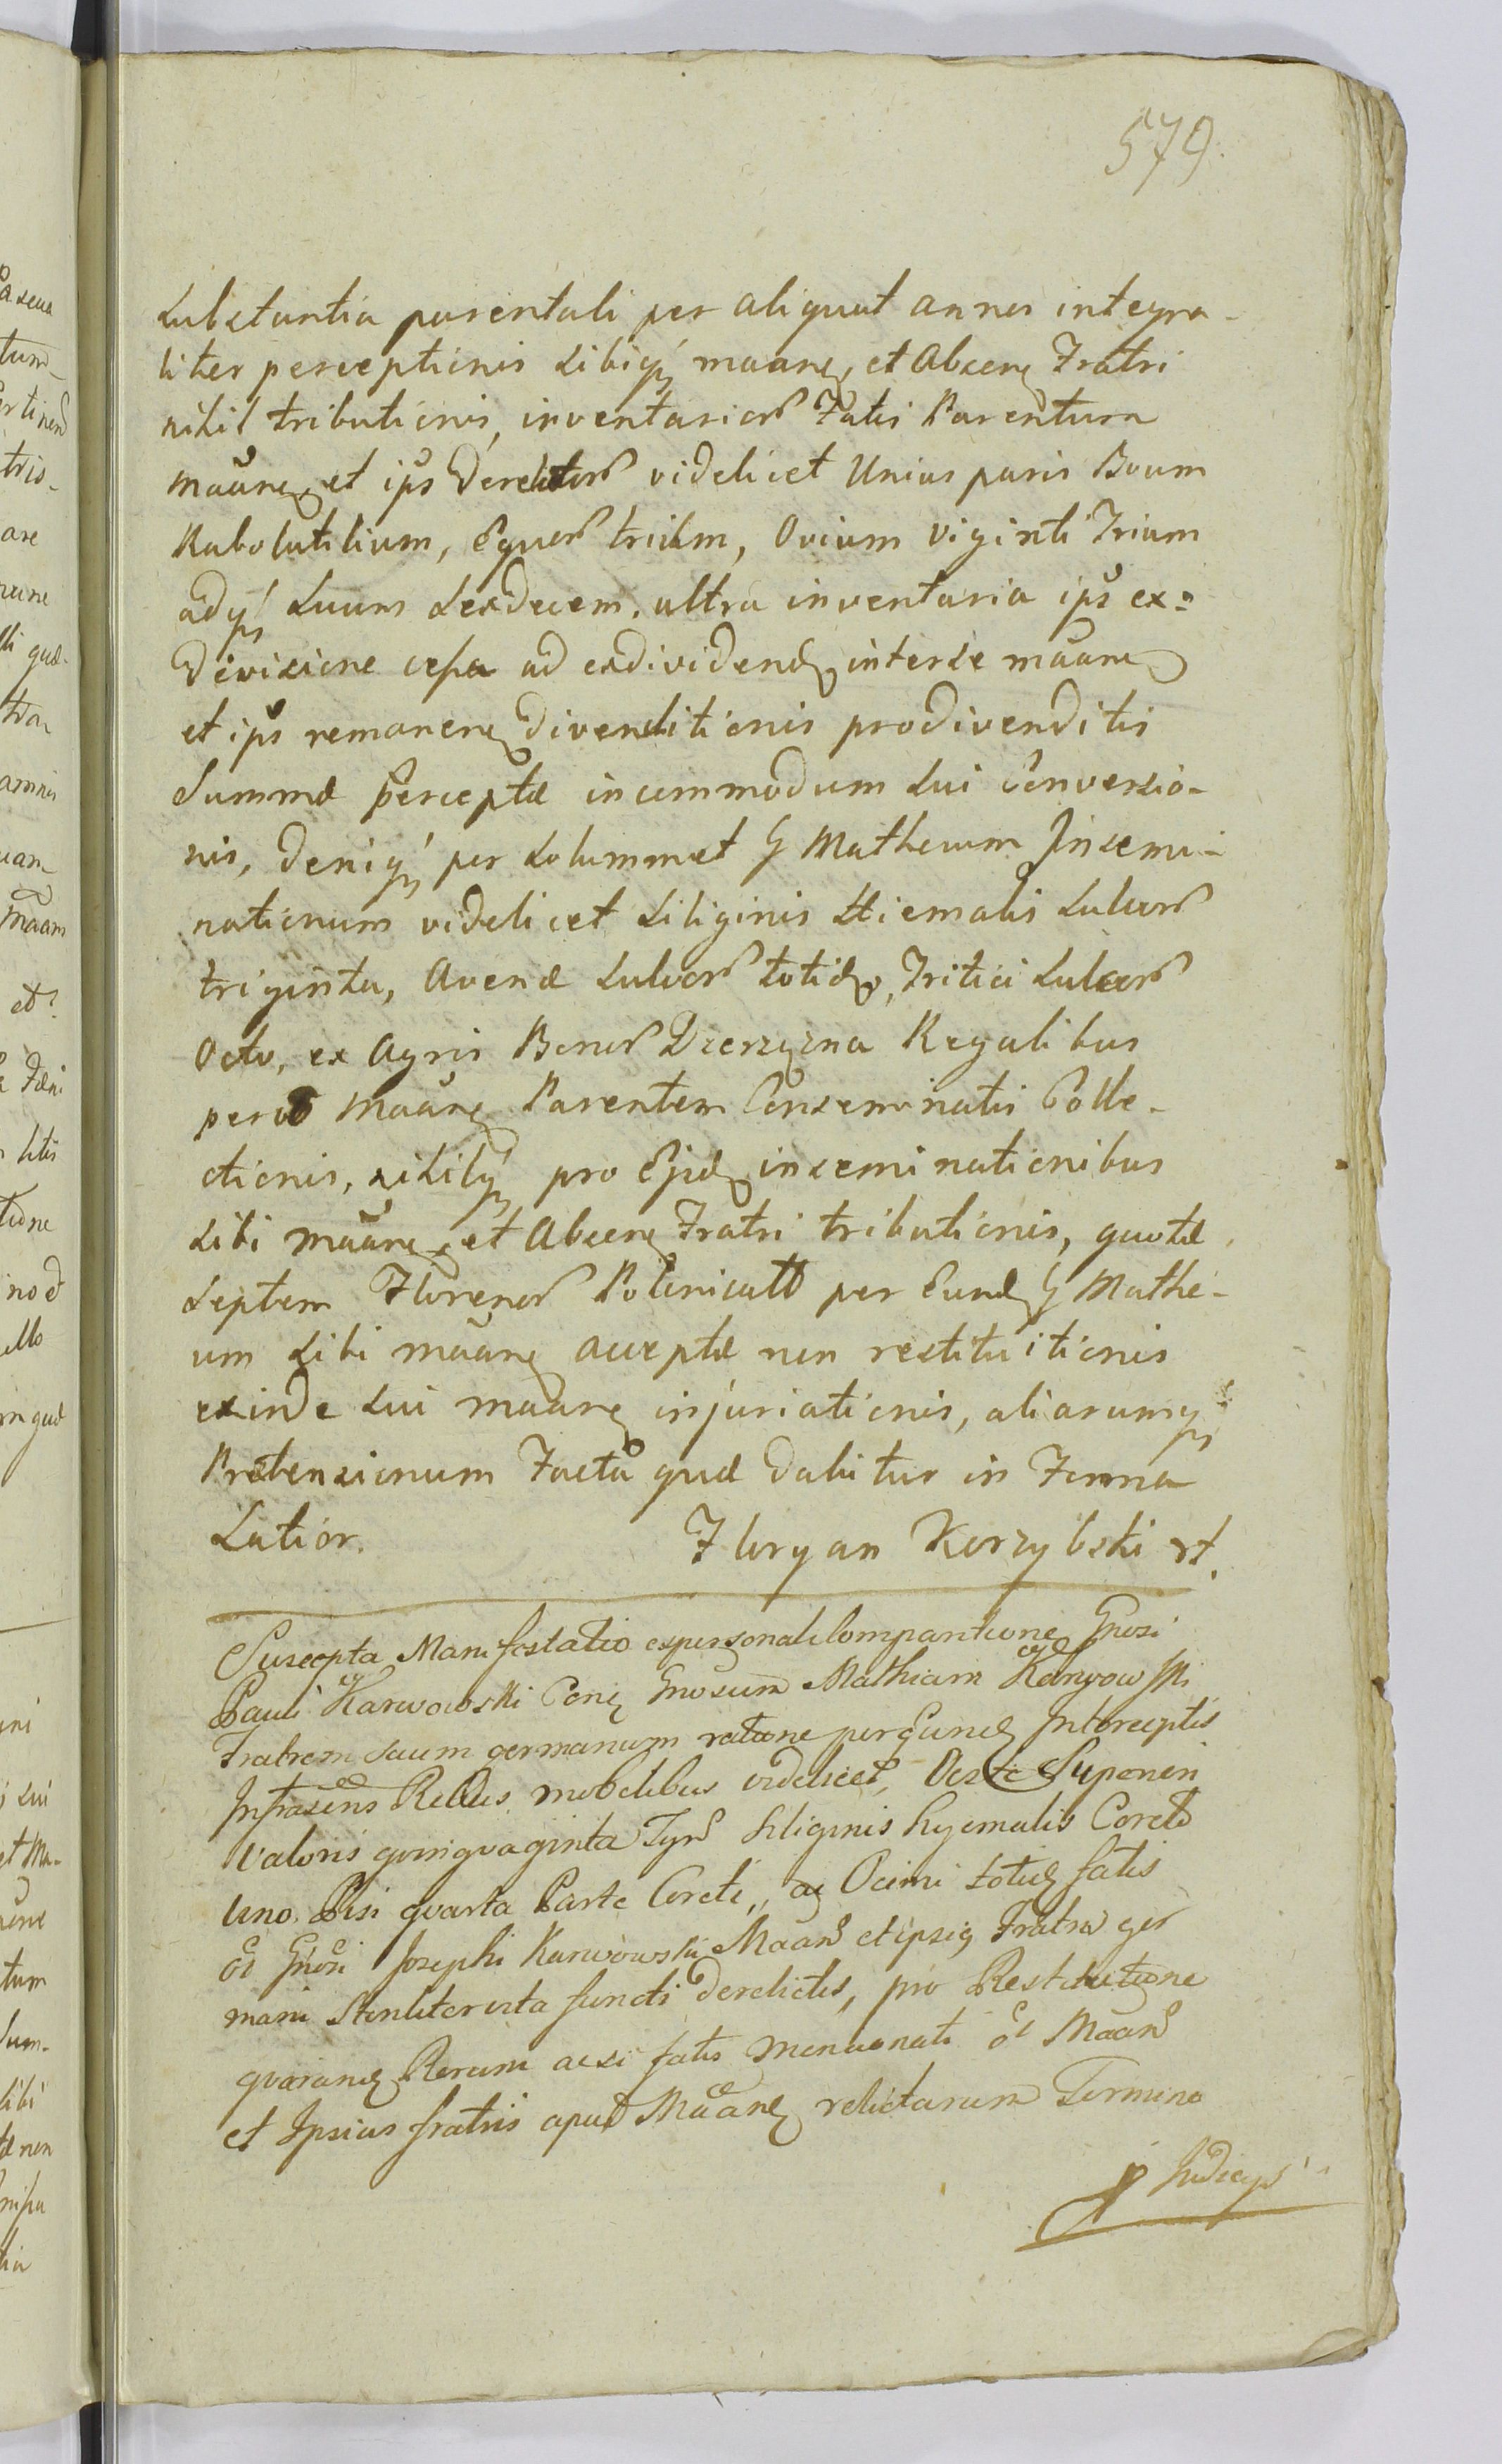 579.
substantia parentali per aliquot annos integra-
liter perceptionis sibiq maane et Absene Fratri
nihil tributionis, inventarior Fatis Parentum
maane et ips derelictor videlicet Unius paris Boum
Rabolatilium, Equor trium, Ovium viginti Trium
adq Suum Sexdecem, ultra inventaria ips ex=
divisione cessa ad exdividend interse maane
et ips remanene divenditionis prodivenditis
Summæ perceptæ incommodum sui Conversio-
nis, deniq per solummet G Matheum Insemi-
nationum videlicet Siliginis Hiemalis Sulcor
triginta, Avenæ Sulcor totid, Tritici Sulcor
Octo, ex Agris Bonor Dzerzgzna Regalibus
per maane Parentem Conseminatis Colle-
ctionis, nihilq pro Ejsd inseminationibus
sibi maane et Absene Fratri tributionis, quotæ
Septem Florenor Polonical per Eund G Mathe-
um sibi maane acceptæ non restituitionis
exinde sui maane injuriationis, aliarumq
Prætensionum Facta quæ dabitur in Forma
Latior. Floryan Korzybski
Suscepta Manifestatio expersonali Comparitione Gnosi
Pauli Karwowski Con Gnosum Mathiam Karwowski
Fratrem suum germanum ratione per Eund Interceptis
Infrasens Rebus mobilibus videlicet, Veste Suponen
valoris quinquaginta Tyn Siliginis hyemalis Coreto
uno Pisi quarta Parte Coreti, ac Ocimi totid satis
ol Gnosi Josephi Karwowski Maane et ipsig Fratris ger
mani Steriliter vita functi derelictis, pro Restitutione
quarund Rerum acsi satis mentionati ol Maane
et Ipsius fratris apud Maane relictarum Termino
Judicys